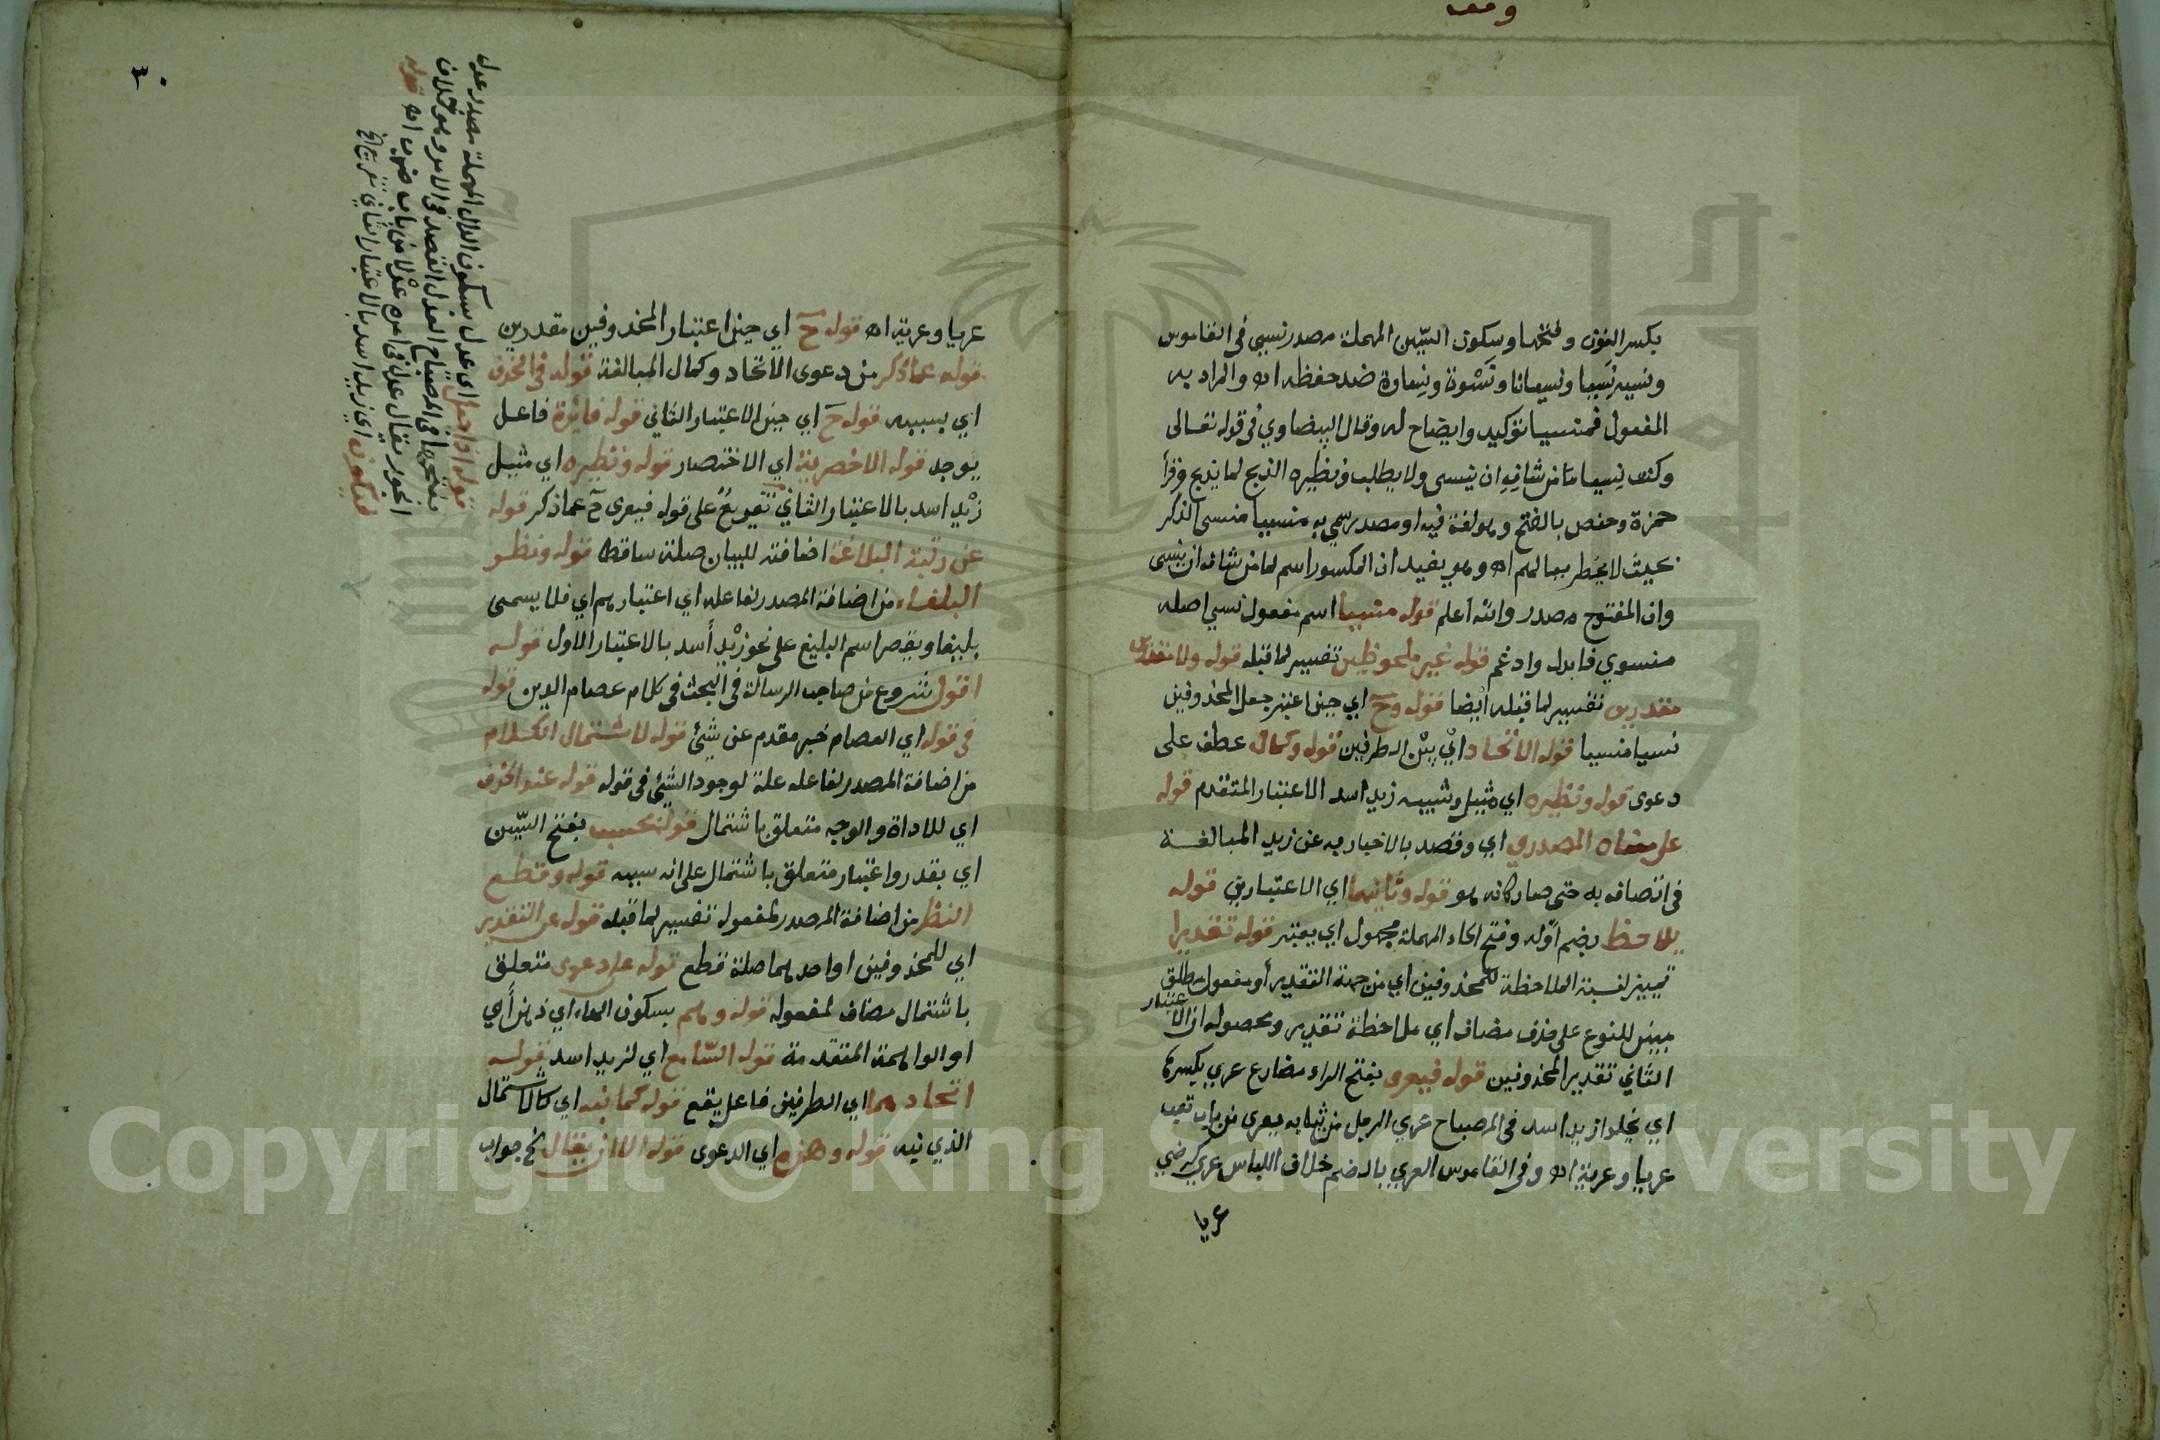 وقف
بكسر النون وفتحها وسكون السّين المهملة مصدر نسي في القاموس
ونسيه نَسيا ونسيانا ونَسْوة ونِساوة ضد حفظه اه والمراد به
المفعول فمنسيا توكيد وايضاح له وقال البيضاوي في قوله تعالى
وكنت نِسيا ما من شانه ان ينسى ولا يطلب ونظيره الذبح لما يذبح وقرأ
حمزة وحفص بالفتح وهو لغة فيه او مصدر سمي به منسيا منسى الذكر
بحيث لا يخطر ببالهم اه وهو يفيد ان المكسور اسم لما من شانه ان ينسى
وان المفتوح مصدر والله اعلم قوله منسيا اسم مفعول نسي اصله
منسوي فابدل وادغم قوله غير ملحوظين تفسير لما قبله قوله ولا مقدرين
مقدرين تفسير لما قبله أيضا قوله وح اي حين اعتبر جعل المحذوفين
نسيا منسيا قوله الاتحاد اي بيْن الطرفين قوله وكمال عطف على
دعوى قوله ونظيره اي مثيل وشبيه زيد اسد الاعتبار المتقدم قوله
على معناه المصدري اي وقصد بالاخبار به عن زيد المبالغة
في اتصافه به حتى صار كانه هو قوله وثانيهما اي الاعتبارين قوله
يلاحظ بضم اوّله وفتح الحاء المهملة مجهول اي يعتبر قوله تقديرا
تمييز لنسبة الملاحظة للمحذوفين اي من جهة التقدير أو مفعول مطلق
مبين للنوع على حذف مضاف اي ملاحظة تقدير ومحصوله ان الاعتبار
الثاني تقدير المحذوفين قوله فيعرى بفتح الراء مضارع عري بكسرها
اي يخلو زيد اسد في المصباح عري الرجل من ثيابه يعرى من باب تعب
عريا وعرية اه وفي القاموس العري بالضم خلاف اللباس عري كرضي
عريا
٣٠
عريا وعرية اه قوله ح اي حين اعتبار المحذوفين مقدرين
قوله عما ذكر من دعوى الاتحاد وكمال المبالغة قوله في الحذف
اي بسببه قوله ح اي حين الاعتبار الثاني قوله فائدة فاعل
يوجد قوله الاخصرية اي الاختصار قوله ونظيره اي مثيل
زيْد اسد بالاعتبار الثاني تفريعٌ على قوله فيعرى ح عما ذكر قوله
عن رتبة البلاغة اضافته للبيان صلة ساقط قوله ونظر
البلغاء من اضافة المصدر لفاعله اي اعتبارهم اي فلا يسمى
بليغا ويقصر اسم البليغ على نحو زيْد أسد بالاعتبار الاول قوله
اقول شروع من صاحب الرسالة في البحث في كلام عصام الدين قوله
في قوله اي العصام خبر مقدم عن شئ قوله لاشتمال الكلام
من اضافة المصدر لفاعله علة لوجود الشئ في قوله قوله عند الحذف
اي للاداة والوجه متعلق باشتمال قوله بحسب بفتح السّين
اي بقدر واعتبار متعلق باشتمال على انه سببه قوله وقطع
النظر من اضافة المصدر لمفعوله تفسير لما قبله قوله عن التقدير
اي للمحذوفين او احدهما صلة قطع قوله على دعوى متعلق
باشتمال مضاف لمفعوله قوله وهم بسكون الهاء اي ذهن أي
او الواهمة المتقدمة قوله السّامع اي لزيد اسد قوله
اتحادهما اي الطرفين فاعل يقع قوله كما فيه اي كالاشتمال
الذي فيه قوله وهذه اي الدعوى قوله الا ان يقال الخ جواب
قوله اذا عدل اي عدل بسكون الدال المهملة مصدر عدل
بفتحها في المصباح العدل القصد في الامور وهو خلاف
الجور يقال عدل في امره عدْلا من باب ضرب اه قوله
فيكون اي زيد اسد بالاعتبار الثاني تفريع الخ